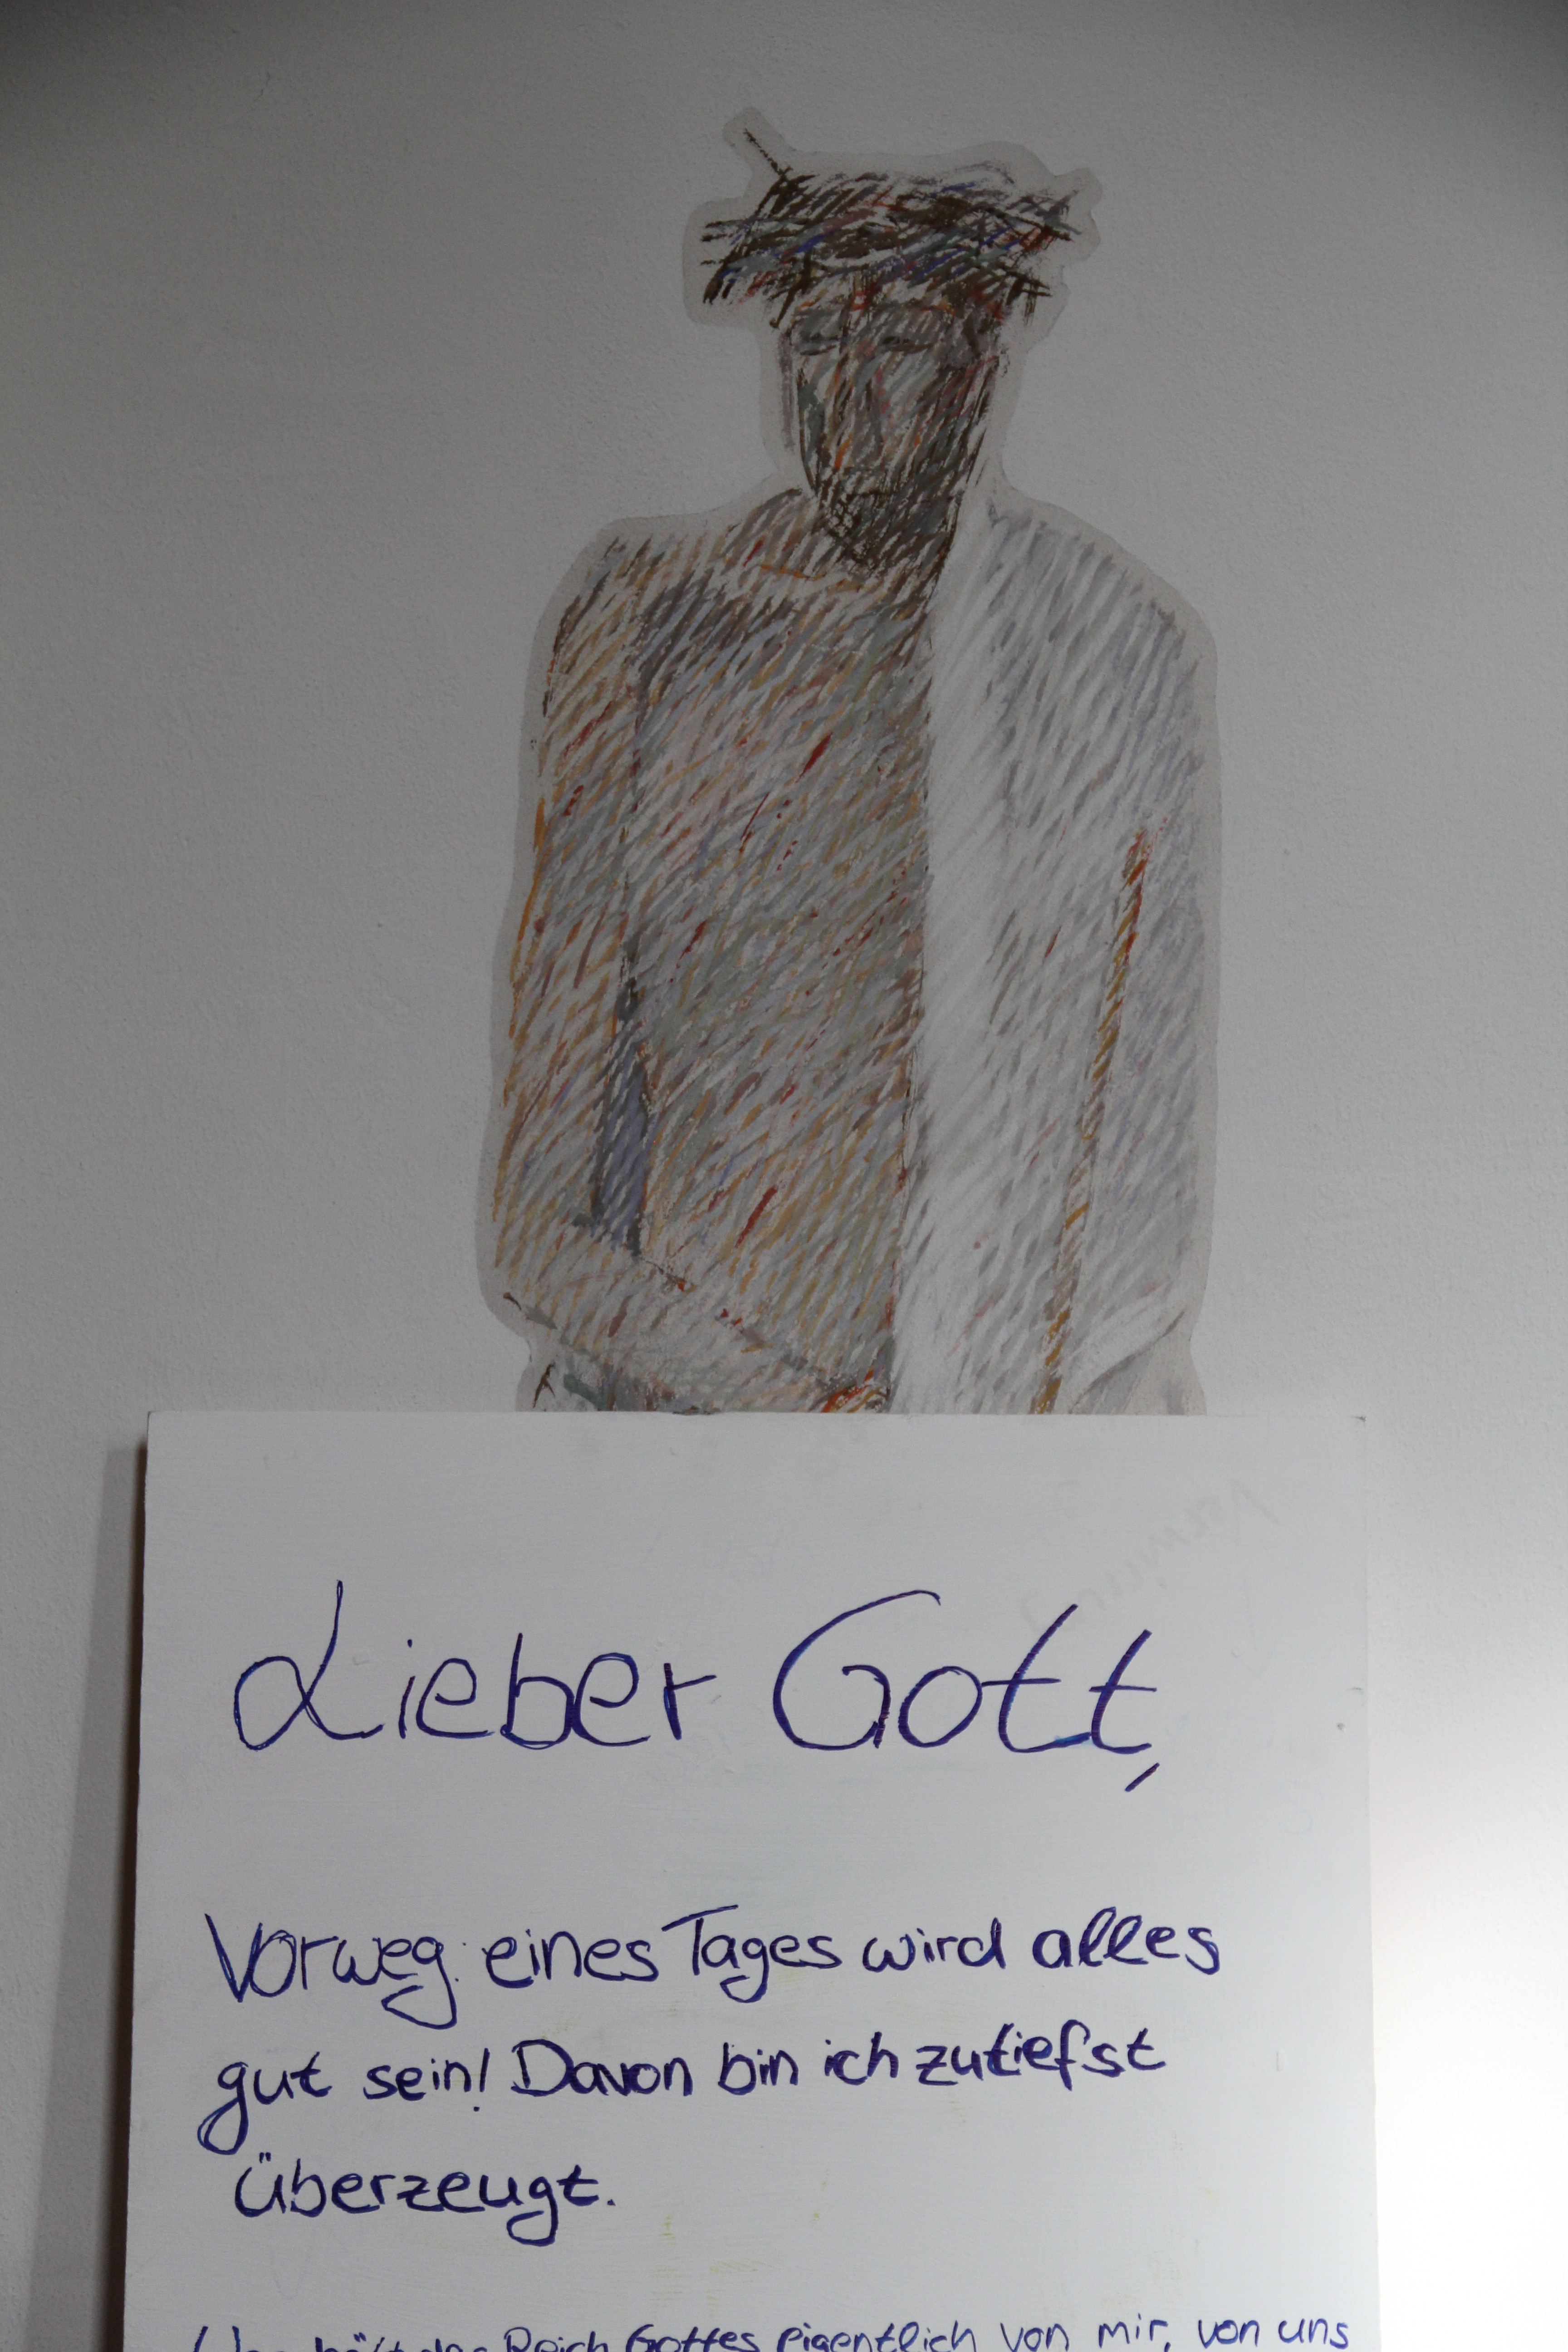 Lieber Gott,
Vorweg: eines Tages wird alles
gut sein! Davon bin ich zutiefst
überzeugt.
Reich Gottes eigentlich von mir, von uns